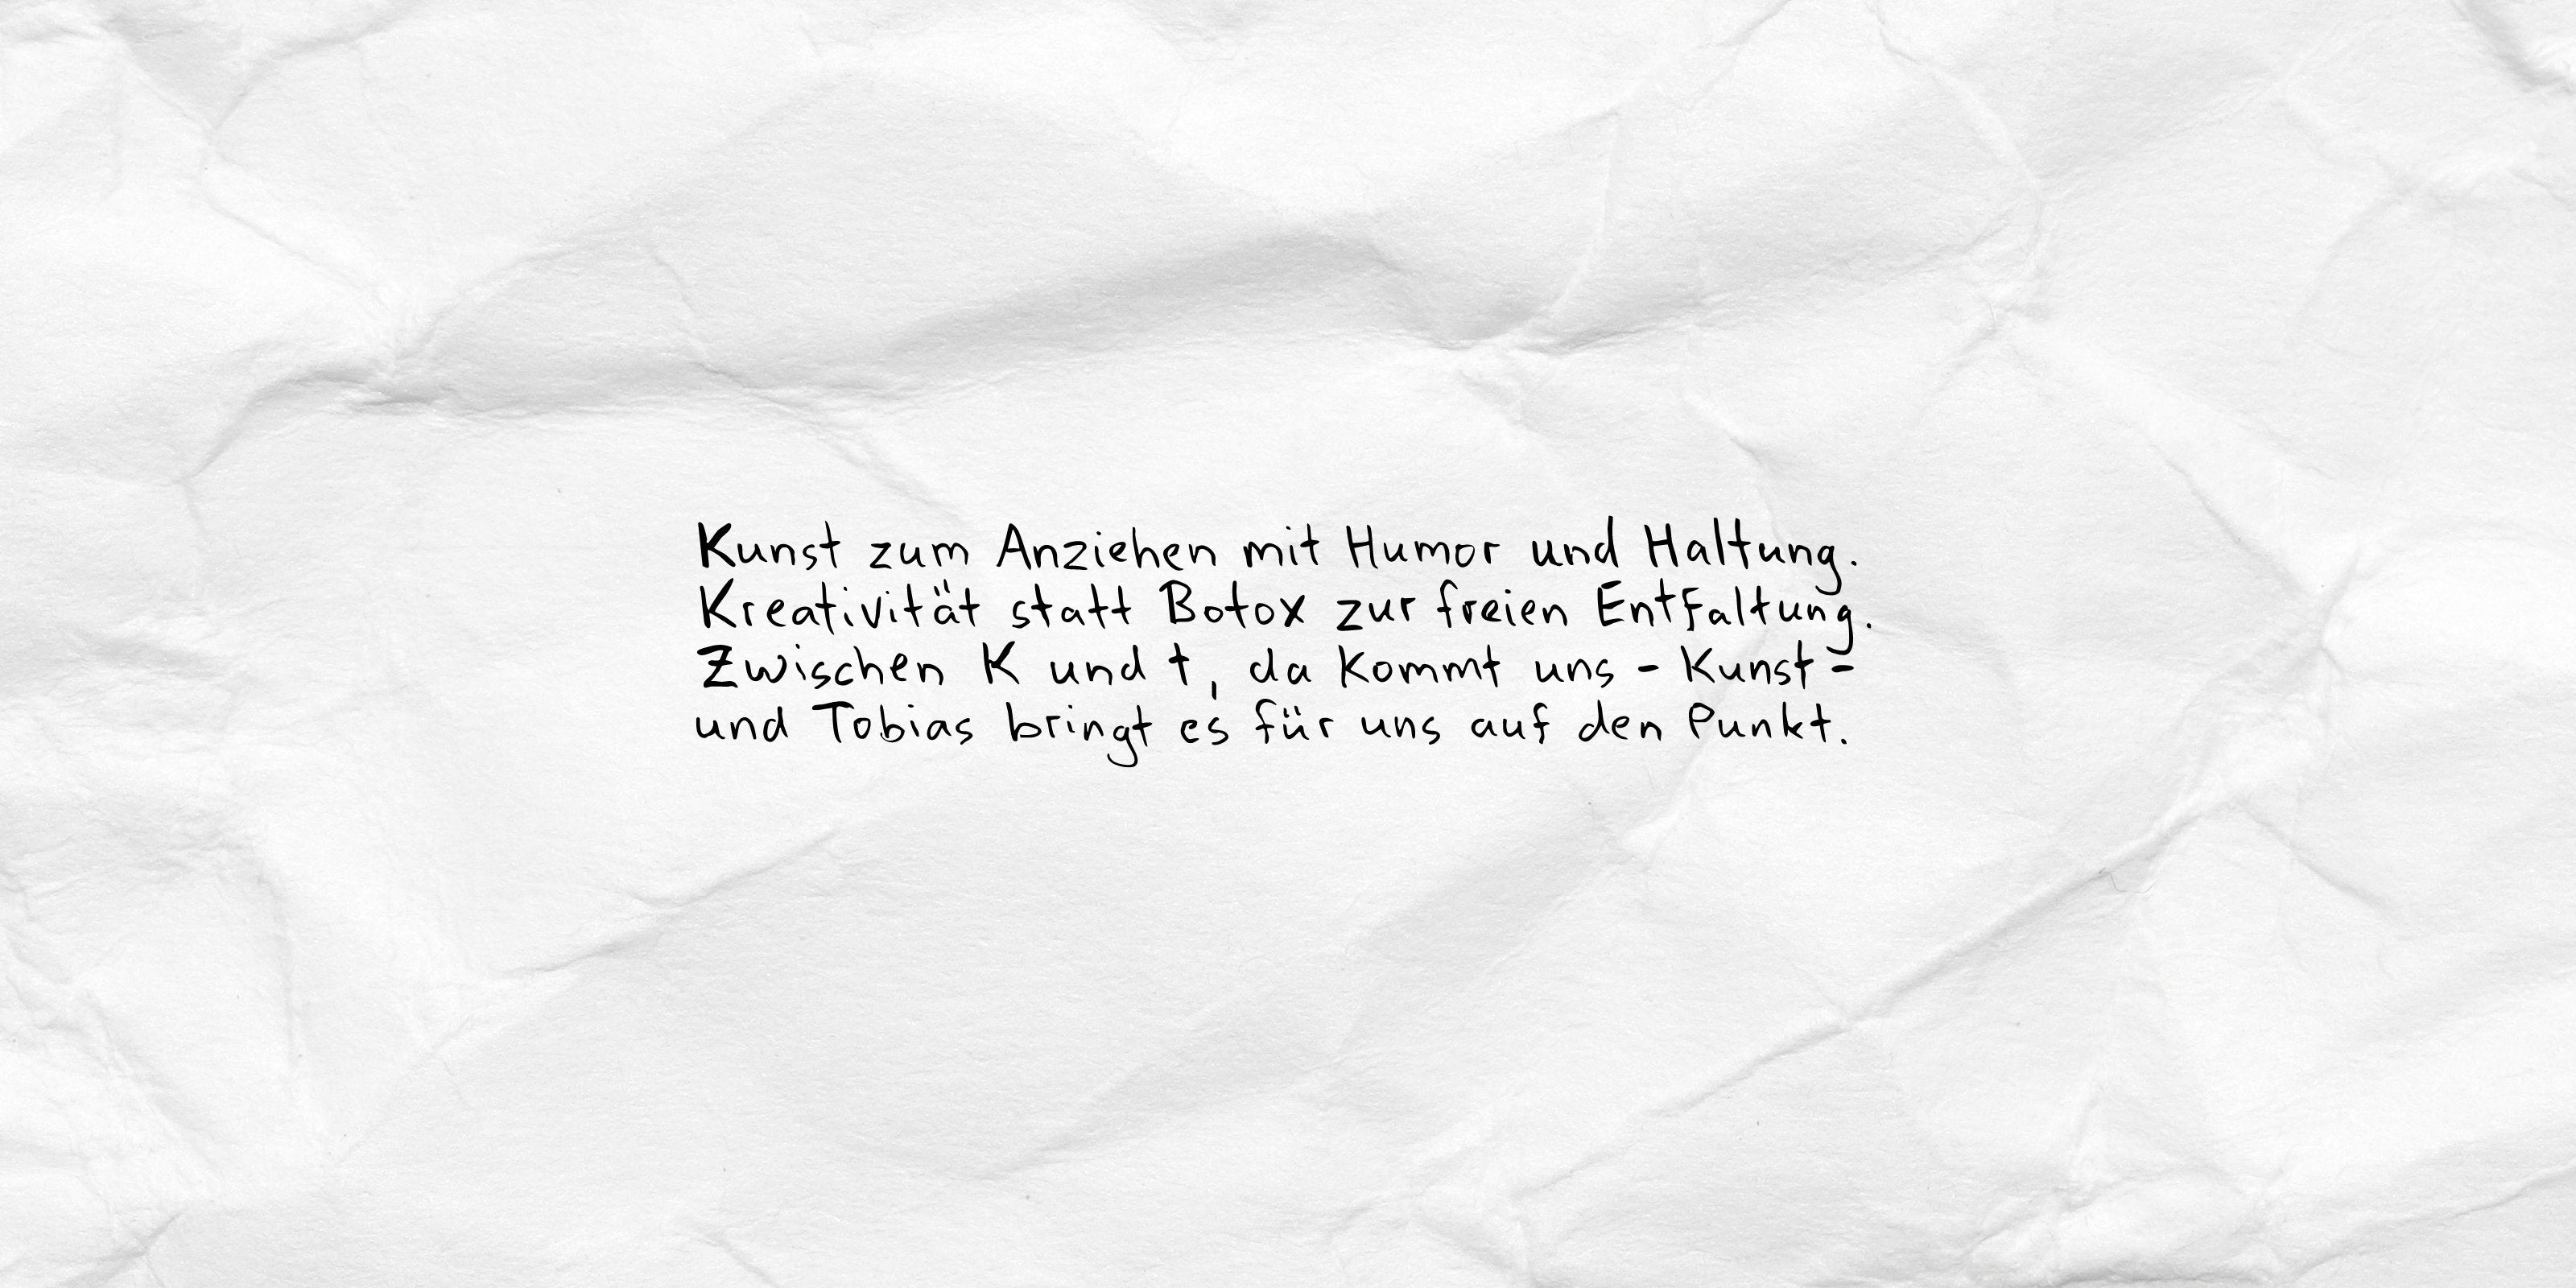 Kunst zum Anziehen mit Humor und Haltung.
Kreativität statt Botox zur freien Entfaltung.
Zwischen K und t, da kommt uns - Kunst -
und Tobias bringt es für uns auf den Punkt.